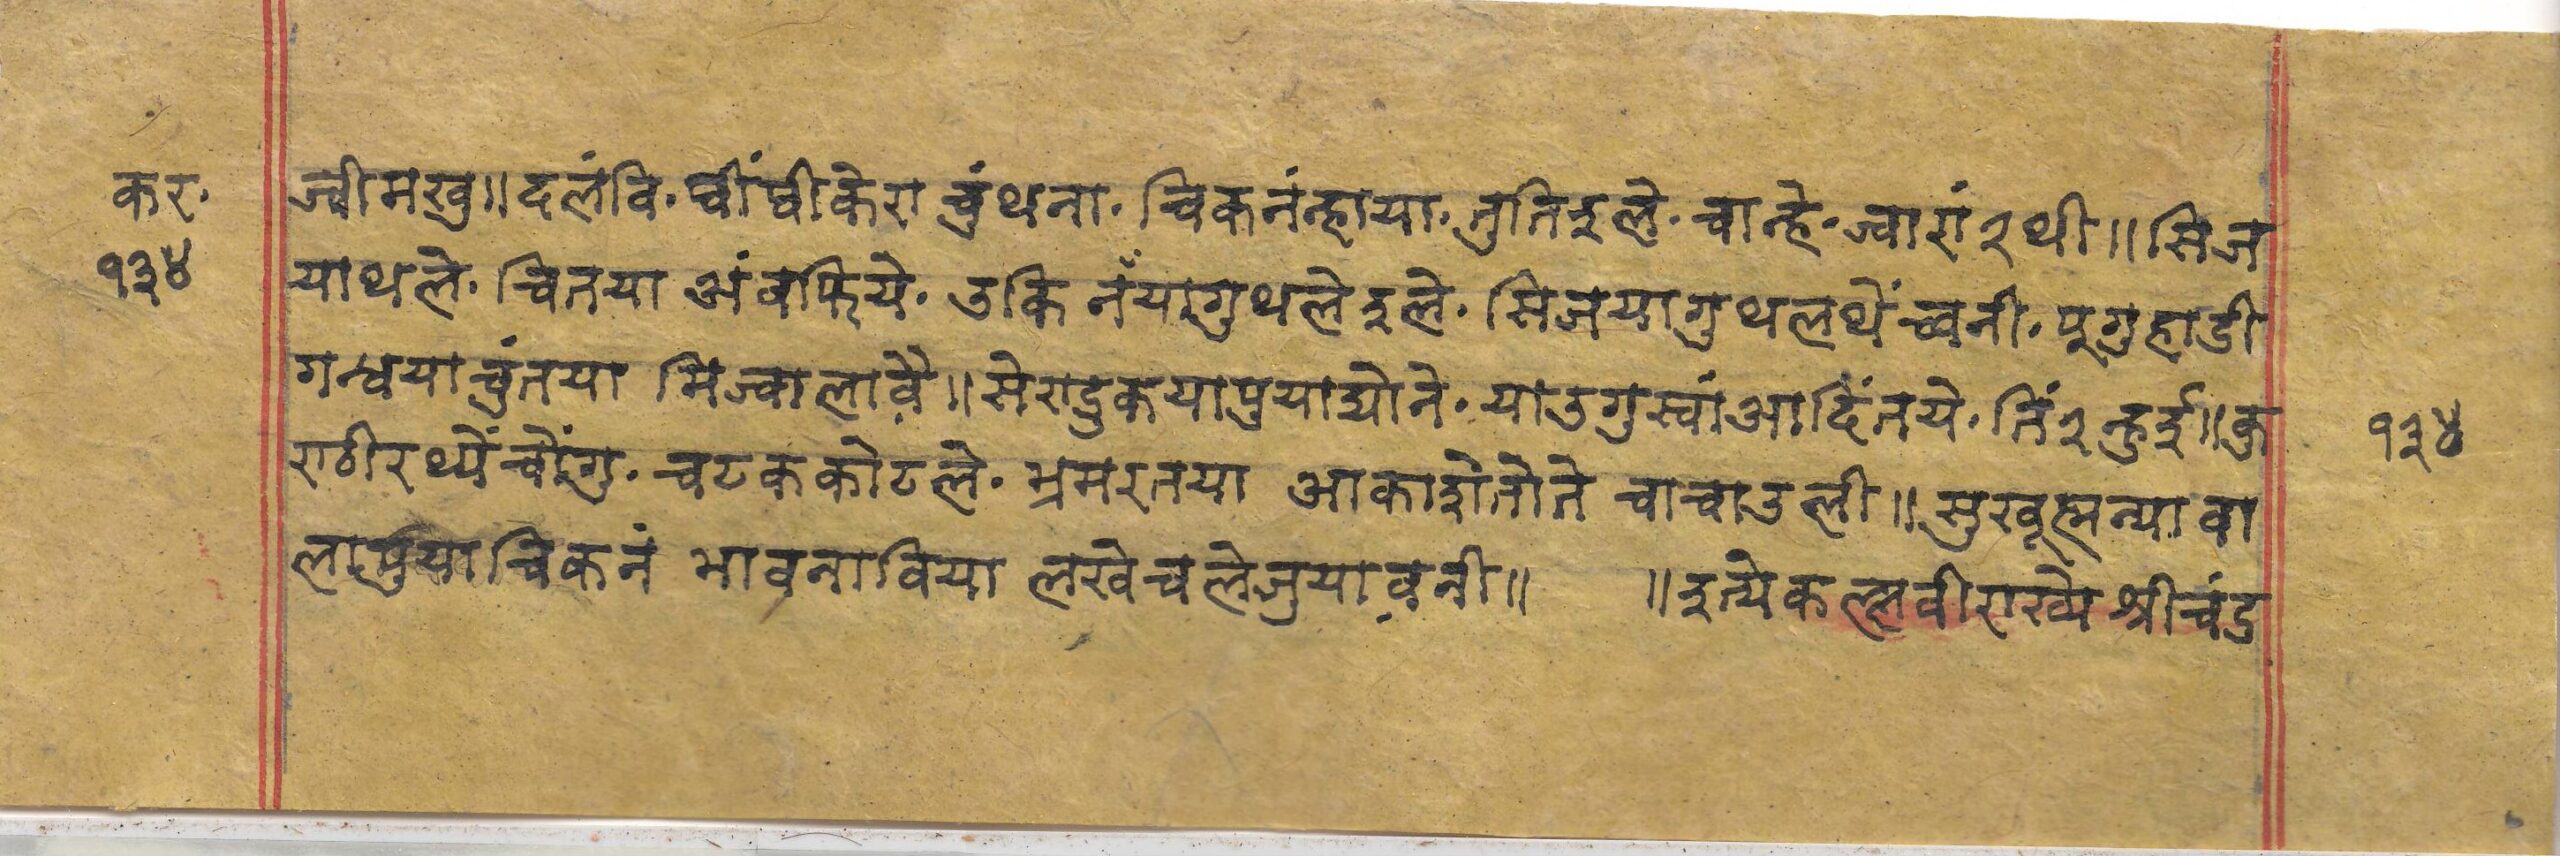 कर· ज्वीमखु॥ दलंवि· घीं घीकेरा चुंथना· चिकनंन्हाया· तुतिइले· चान्हे· ज्वारां २ थी॥ सिज
१३४ याथले· चितया अंवफिये· उकि नँयागुथलेइले· सिजयागुथलथें च्वनी· पूगुहाडी
गन्धयाचुंतया मिज्वालावै॥ सेराडुकयापुयाद्योने· याउगुस्वांआदिंतये· तिं २ न्हुई॥ कु १३४
राठीरथ्यें चोंगु· चटककोटले· भ्रमरतया आकाशेतोते चाचाउली॥ सुखूह्मन्यावा
लापुयाचिकनं भावनाविया लखेचलेजुयावनी॥ ॥ इत्येकल्लवीराख्ये श्रीचंड